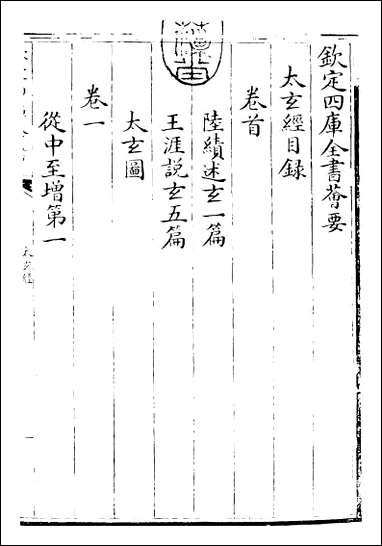 欽定四庫全書薈要
太玄經目錄
卷首
陸績述玄一篇
王涯說玄五篇
太玄圖
卷一
從中至增第一
太玄經
一